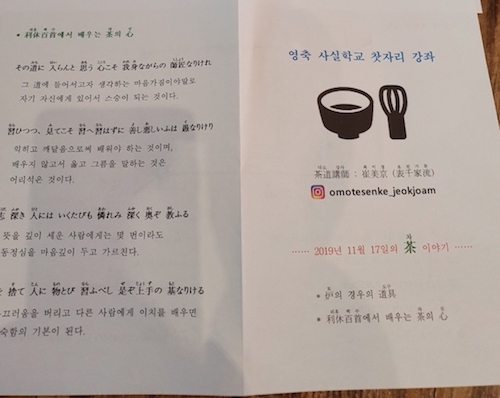 * 利休百首에서 배우는 茶의 心
その道に 入らんと 思う 心こそ 我身ながらの 師匠なりけれ
그 道에 들어서고자 생각하는 마음가짐이야말로
자기 자신에게 있어서 스승이 되는 것이다.
習ひつつ、見てこそ 習へ 習はずに 善し悪しいふは 愚なりけり
익히고 깨달음으로써 배워야 하는 것이며,
배우지 않고서 옳고 그름을 말하는 것은
어리석은 것이다.
志 深き 人には いくたびも 憐れみ 深く 奥ぞ 教ふる
뜻을 깊이 세운 사람에게는 몇 번이라도
동정심을 마음깊이 두고 가르친다.
捨て 人に 物とひ 習ふべし 是ぞ 上手の 基なりける
끄러움을 버리고 다른 사람에게 이치를 배우면
숙함의 기본이 된다.
영축 사실학교 찻자리 강좌
茶道講師 : 崔美京 (表千家流)
omotesenke_jeokjoam
...... 2019년 11월 17일의 茶 이야기 ......
* 炉의 경우의 道具
* 利休百首에서 배우는 茶의 心